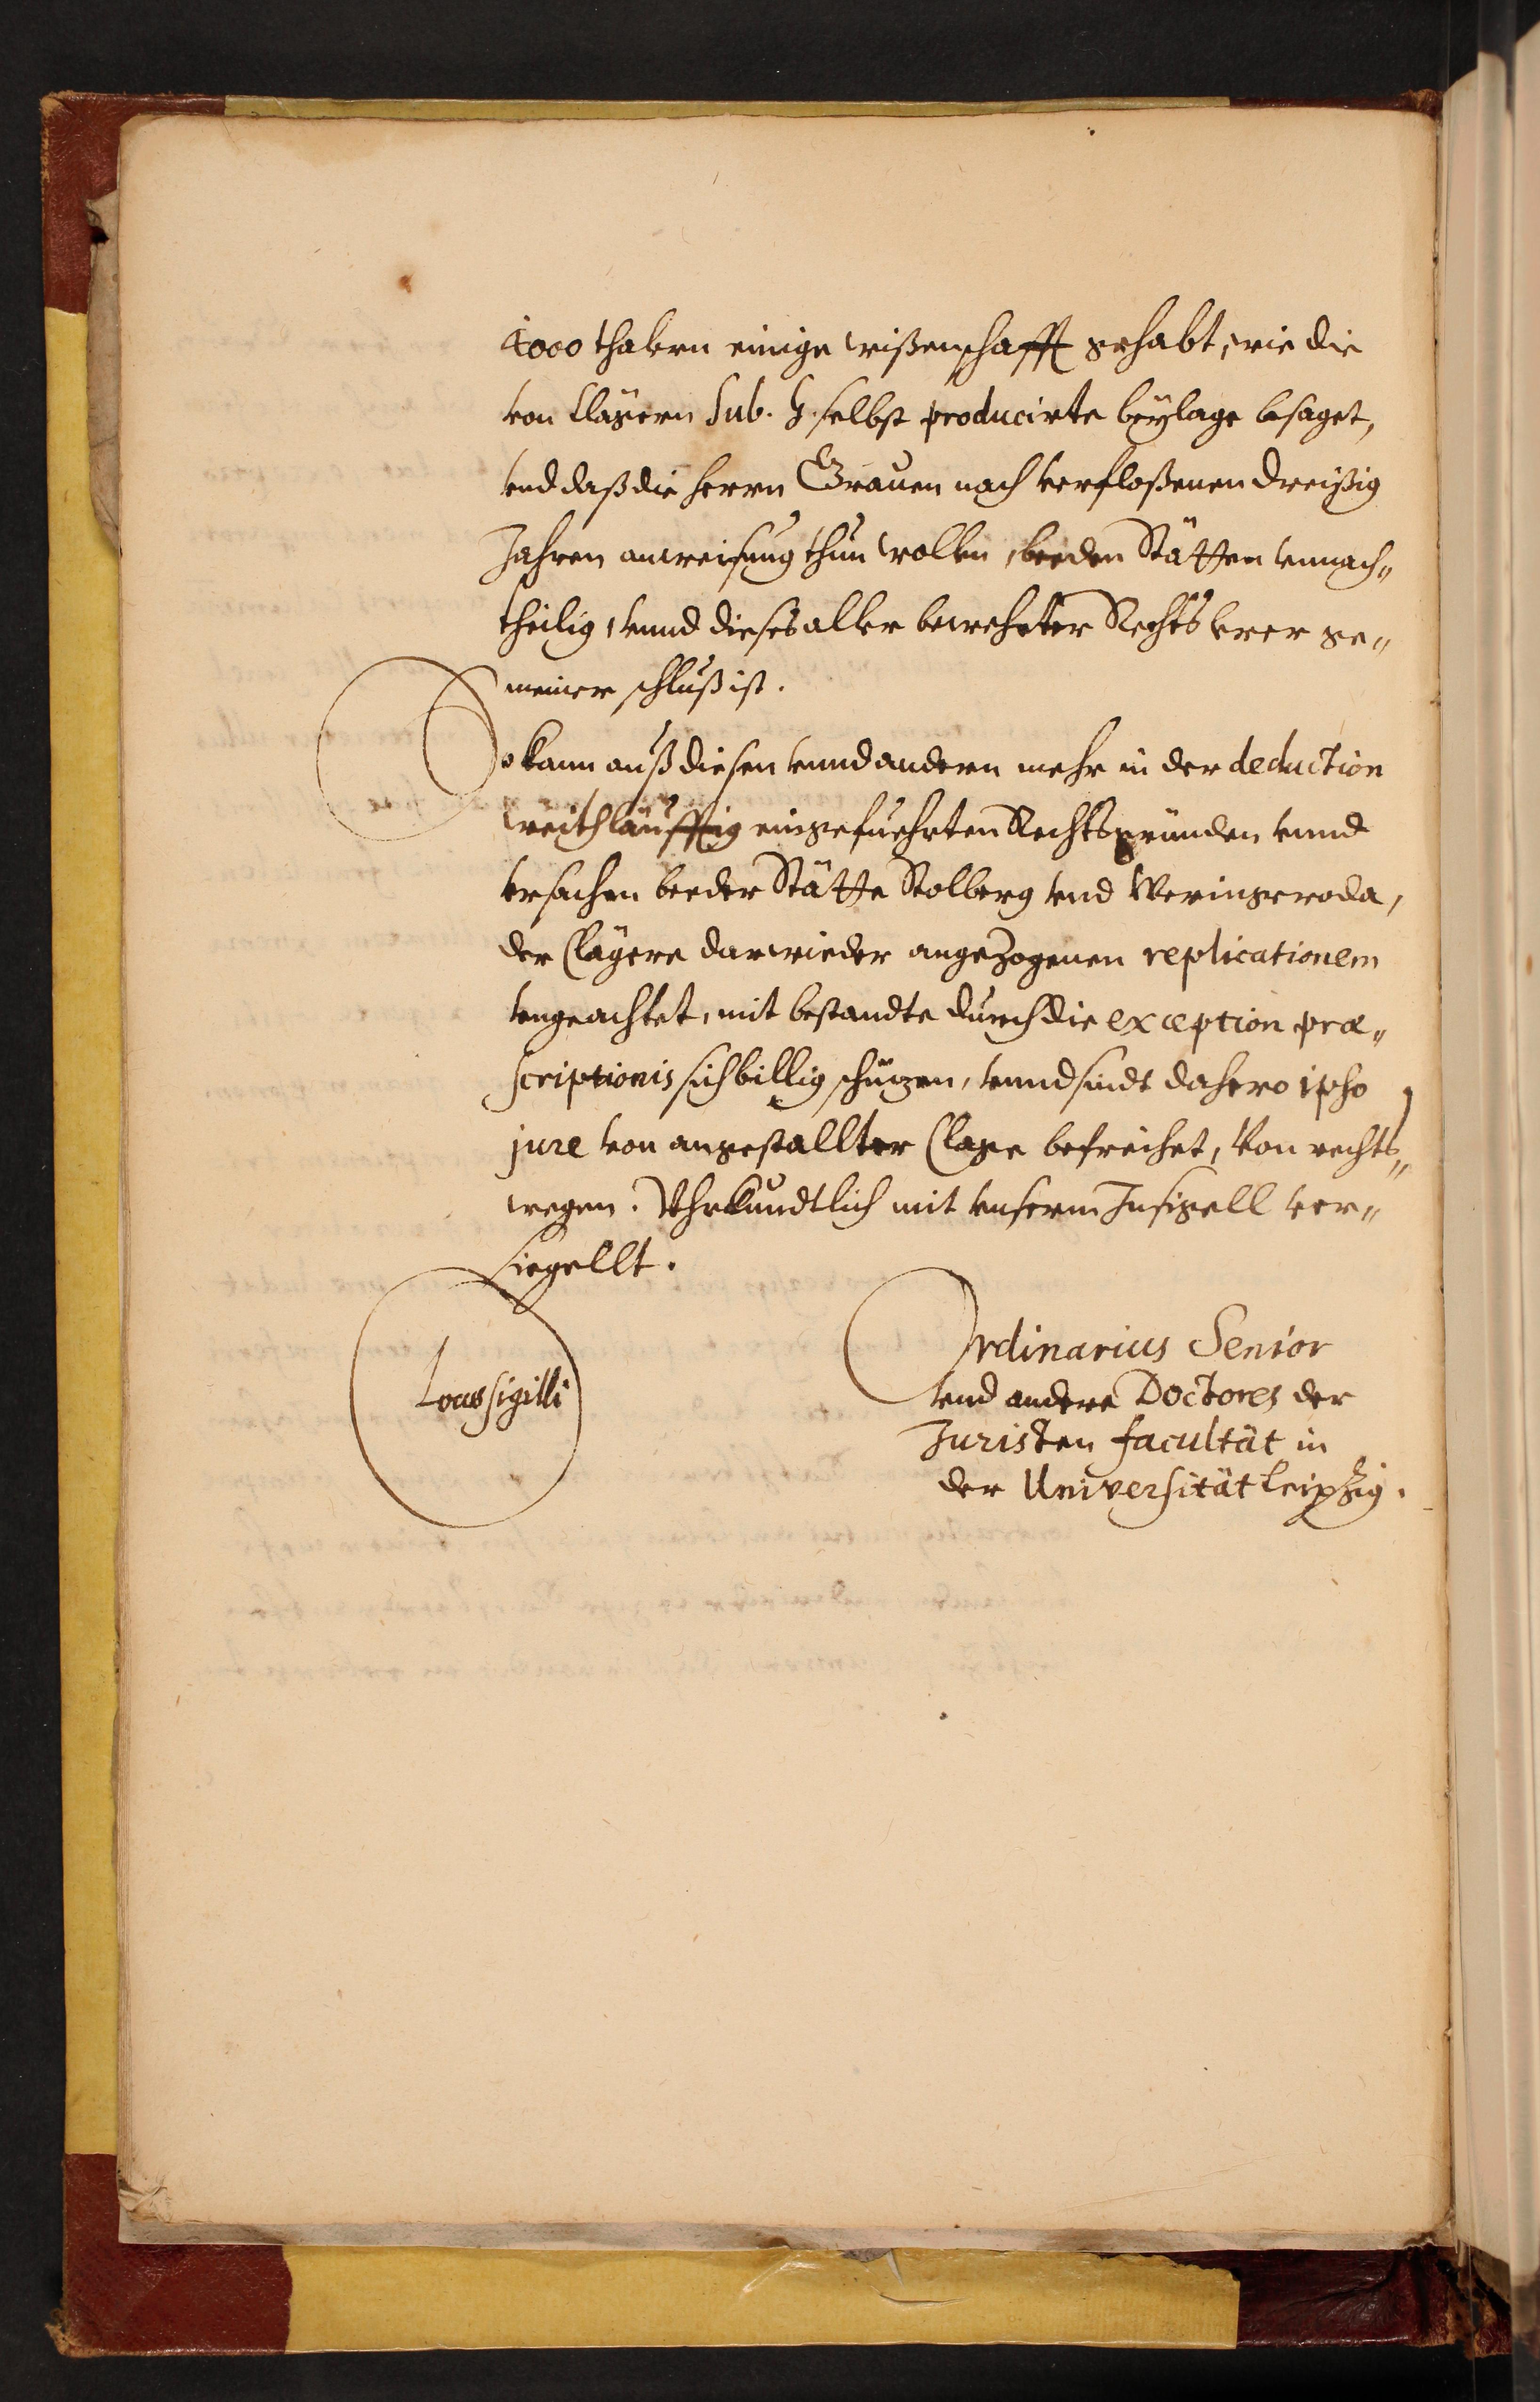 4000 thalern einige wißenschafft gehabt, wie die
von Clägern Sub. G. selbst producirte beÿlage besaget,
vnd daß die herrn Grauen nach verfloßenen dreißig
Jahren anweisung thun wollen, beeden Stätten vnnach„
theilig, vnnd dieses aller bewehrter Rechts lerer ge„
meiner schluß ist.
So kann auß diesen vnnd andern mehr in der deduction
weithläufftig eingefuehrten Rechtsgründen vnnd
vrsachen beeder Stätte Stolberg vnd Wernigeroda,
der Clägere darwieder angezogenen replicationem
vngeachtet, mit bestandte durch die exception præ„
scriptionis sich billig schüzen, vnnd sindt dahero ipso
jure von angestallter Clage befreihet, Von rechts„
wegen. Vhrkundtlich mit vnserm Insigell ver„
siegellt.
Locus sigilli
Ordinarius Senior
vnd andere Doctores der
Juristen facultät in
der Universität Leipzig.